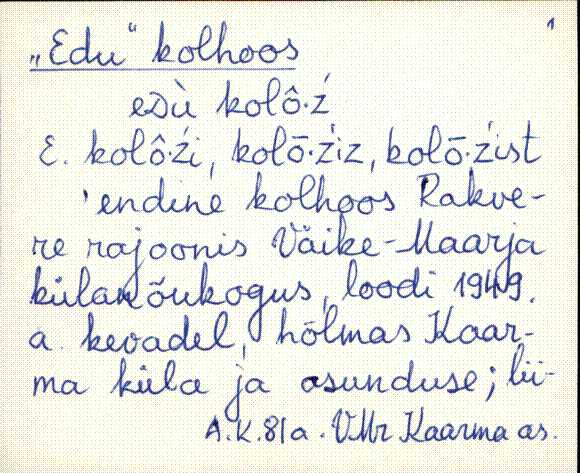 1
„Edu“ kolhoos
eDù kolô·ź
E. kolô·źi, kolō·źiz, kolō·źist
'endine kolhoos Rakve-
re rajoonis Väike-Maarja
külanõukogus, loodi 1949.
a. kevadel, hõlmas Kaar-
ma küla ja asunduse; lii-
A.K. 81a. VMr Kaarma as.